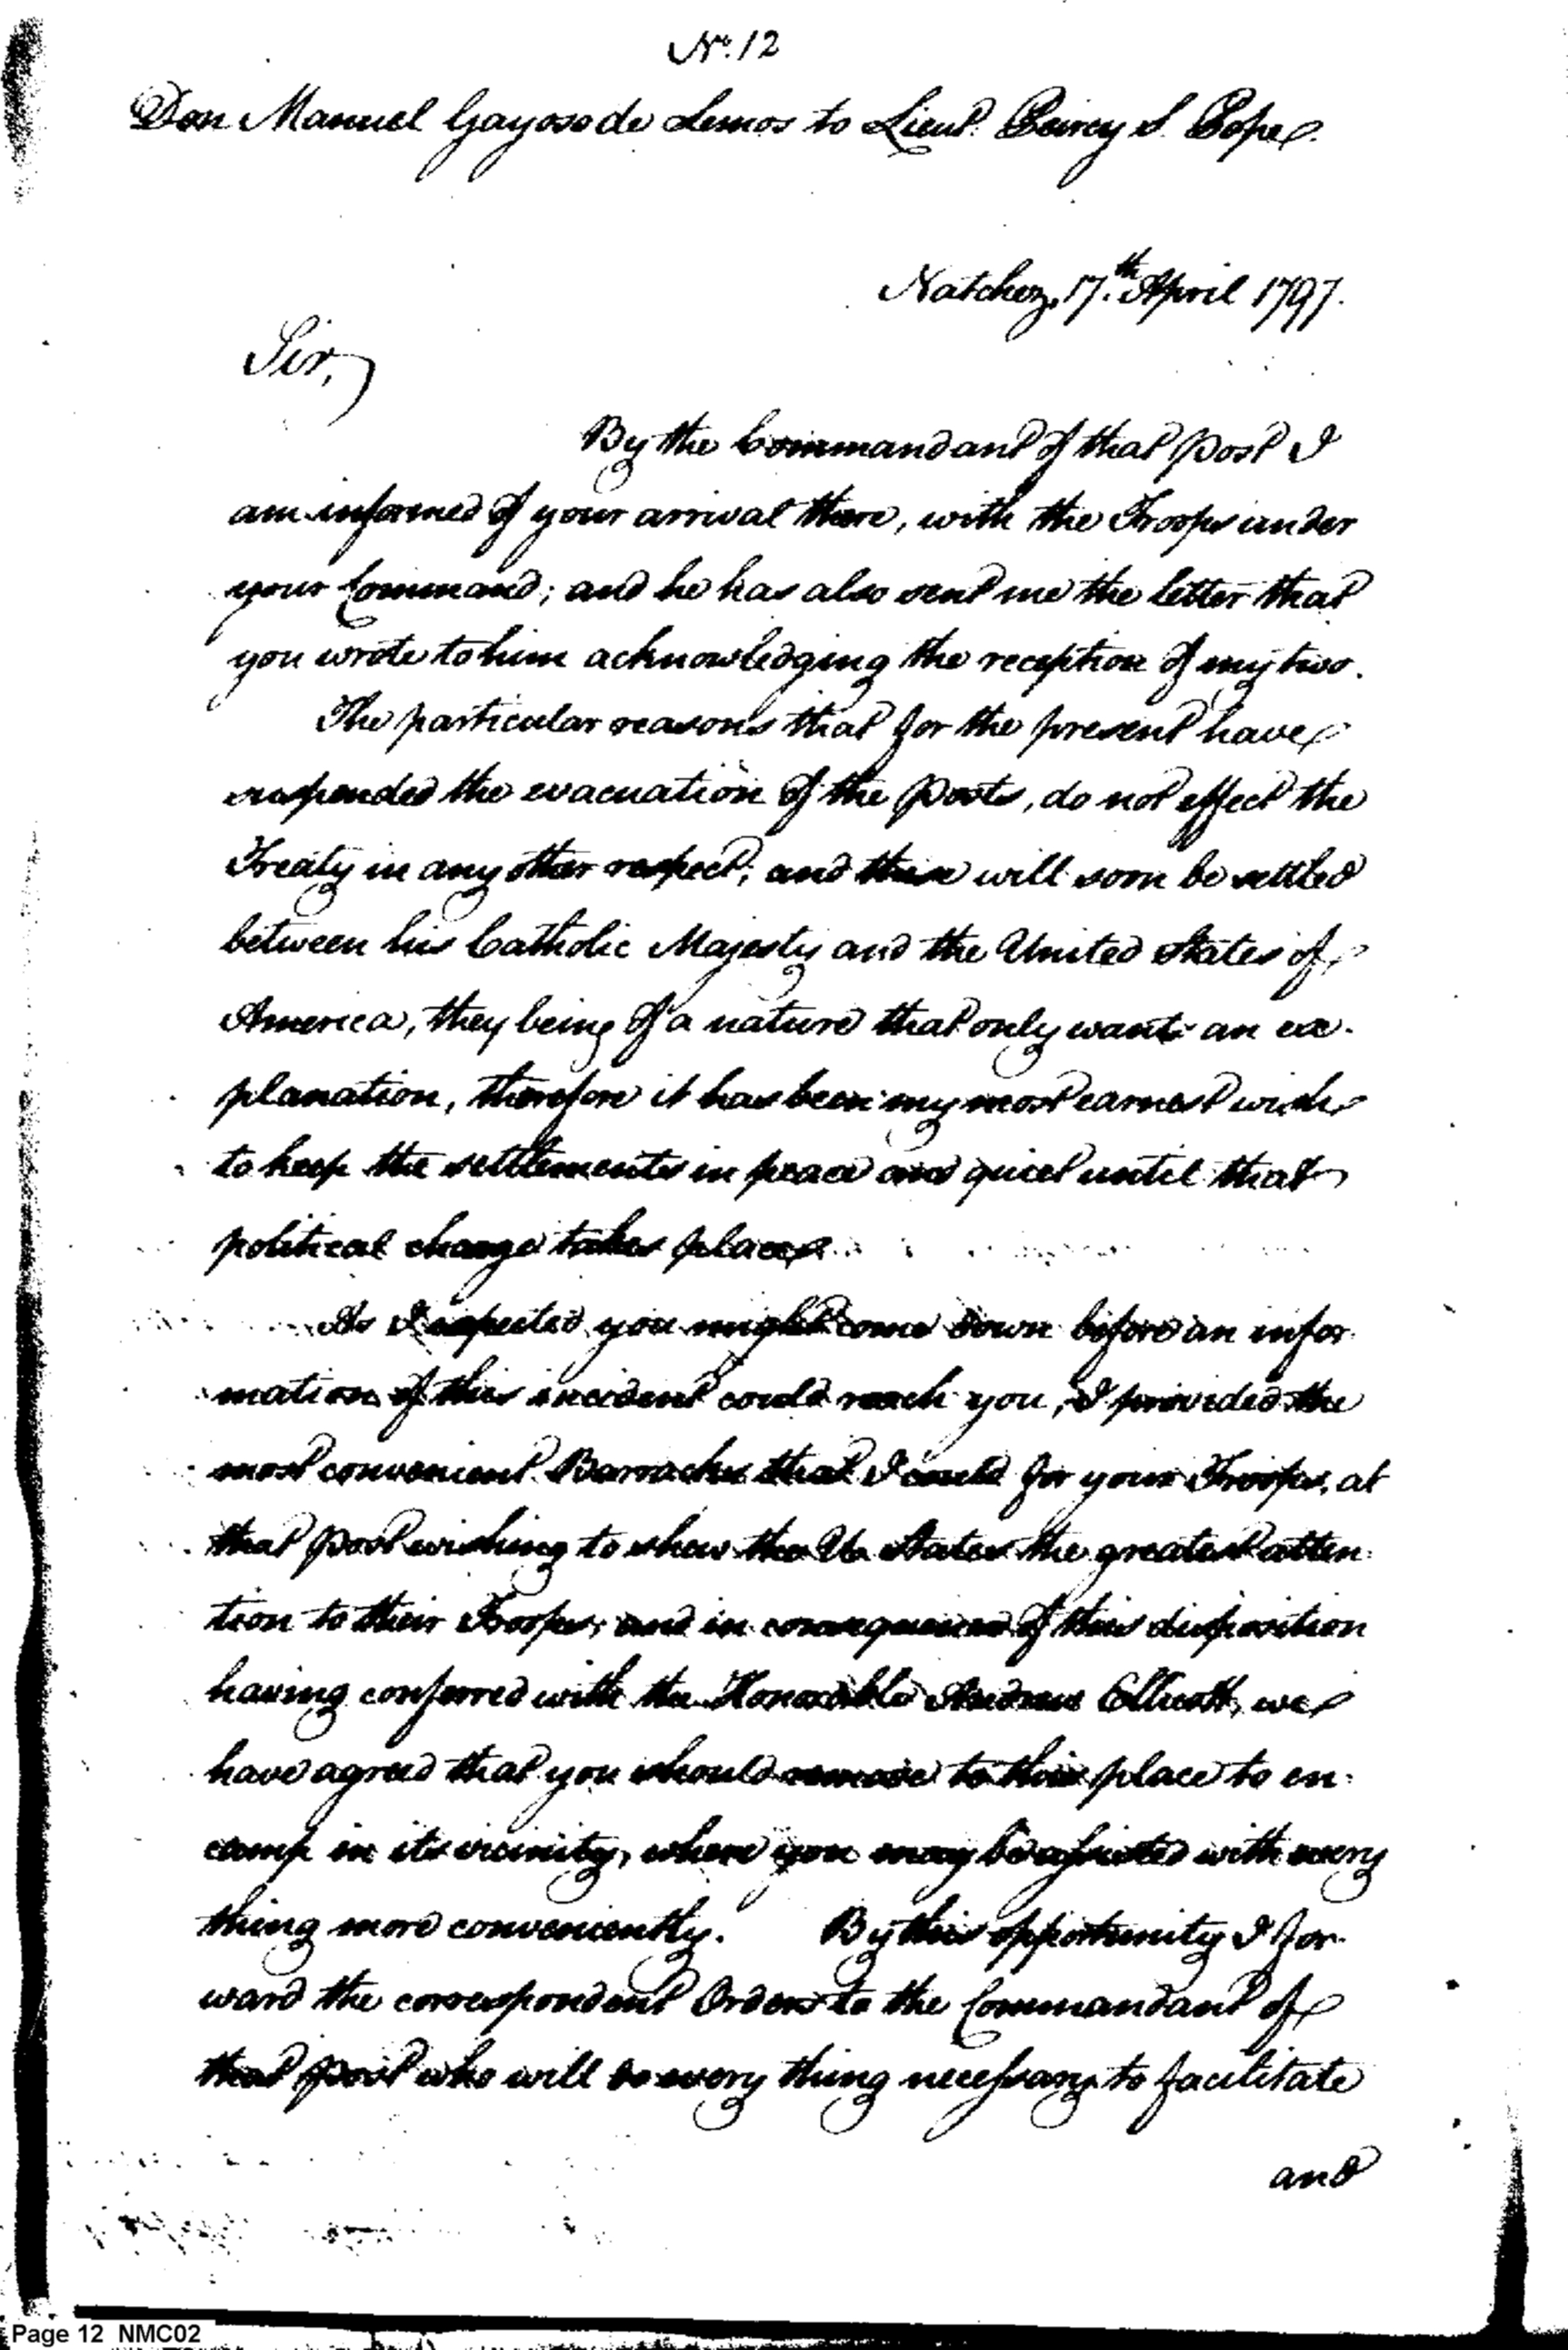 No. 12
Don Manuel Gayoso de Lemos to Lieut. Peircy S. Pope.
Natchez, 17.th April 1797.
Sir,
By the Commandant of that Post I
am informed of your arrival there, with the Troops under
your Command; and he has also sent me the letter that
you wrote to him acknowledging the reception of my two.
The particular reasons that for the present have
suspended the evacuation of the Posts, do not effect the
Treaty in any other respect; and these will soon be settled
between his Catholic Majesty and the United States of
America, they being of a nature that only wants an ex-
planation, therefore it has been my most earnest wish
to keep the settlements in peace and quiet until that
political change takes place.
As I expected you might come down before an infor-
mation of this incident could reach you, I provided the
most convenient Barracks that I could for your Troops, at
that Post wishing to shew the U. States the greatest atten-
tion to their Troops; and in consequence of this disposition
having conferred with the Honorable Andrew Ellicott, we
have agreed that you should remove to this place to en-
camp in its vicinity, where you may be assisted with every
thing more conveniently. By this opportunity I for-
ward the correspondent Orders to the Commandant of
that Post who will do every thing necessary to facilitate
and
Page 12 NMC02